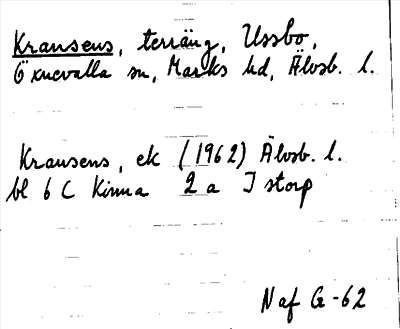 Kransens, terräng, Ussbo,
Öxnevalla sn, Marks hd, Älvsb. l.
Kransens, ek (1962) Älvsb. l.
bl 6 C Kinna 2 a Istorp
N af G -62